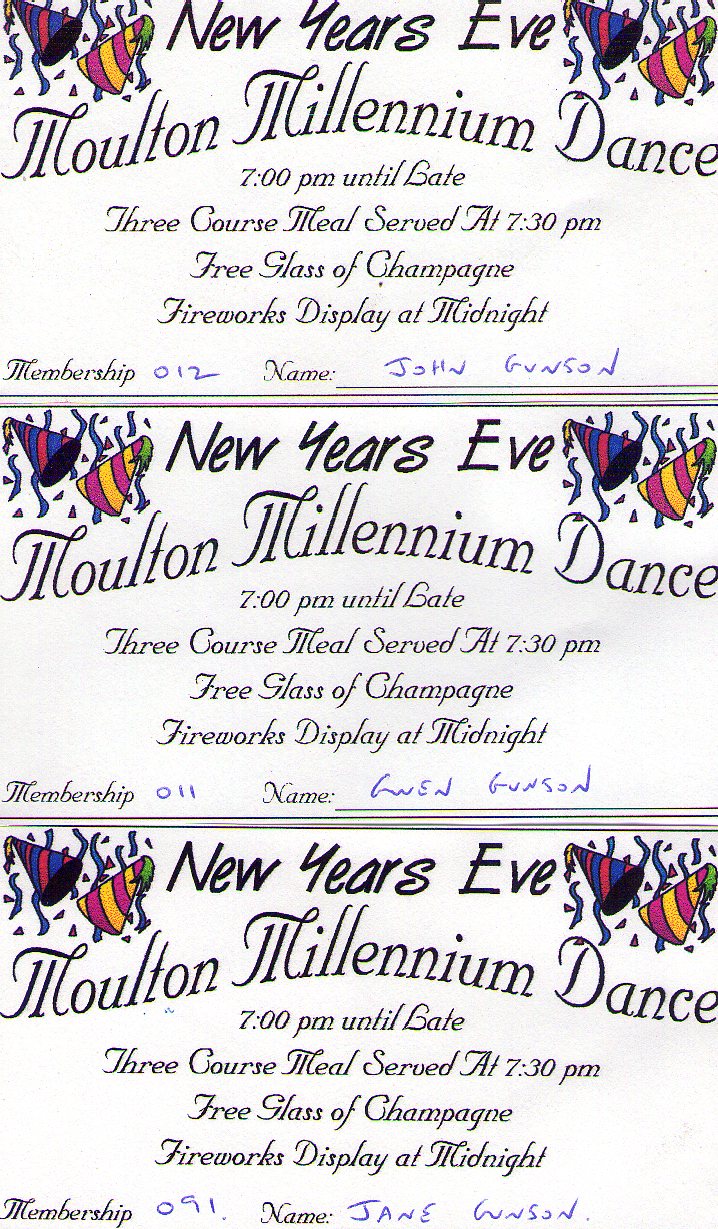 New Years Eve
Moulton Millennium Dance
7:00 pm until Late
Three Course Meal Served At 7:30 pm
Free Glass of Champagne
Fireworks Display at Midnight
Membership 012 Name: JOHN GUNSON
New Years Eve
Moulton Millennium Dance
7:00 pm until Late
Three Course Meal Served At 7:30 pm
Free Glass of Champagne
Fireworks Display at Midnight
Membership 011 Name: GWEN GUNSON
New Years Eve
Moulton Millennium Dance
7:00 pm until Late
Three Course Meal Served At 7:30 pm
Free Glass of Champagne
Fireworks Display at Midnight
Membership 091. Name: JANE GUNSON.